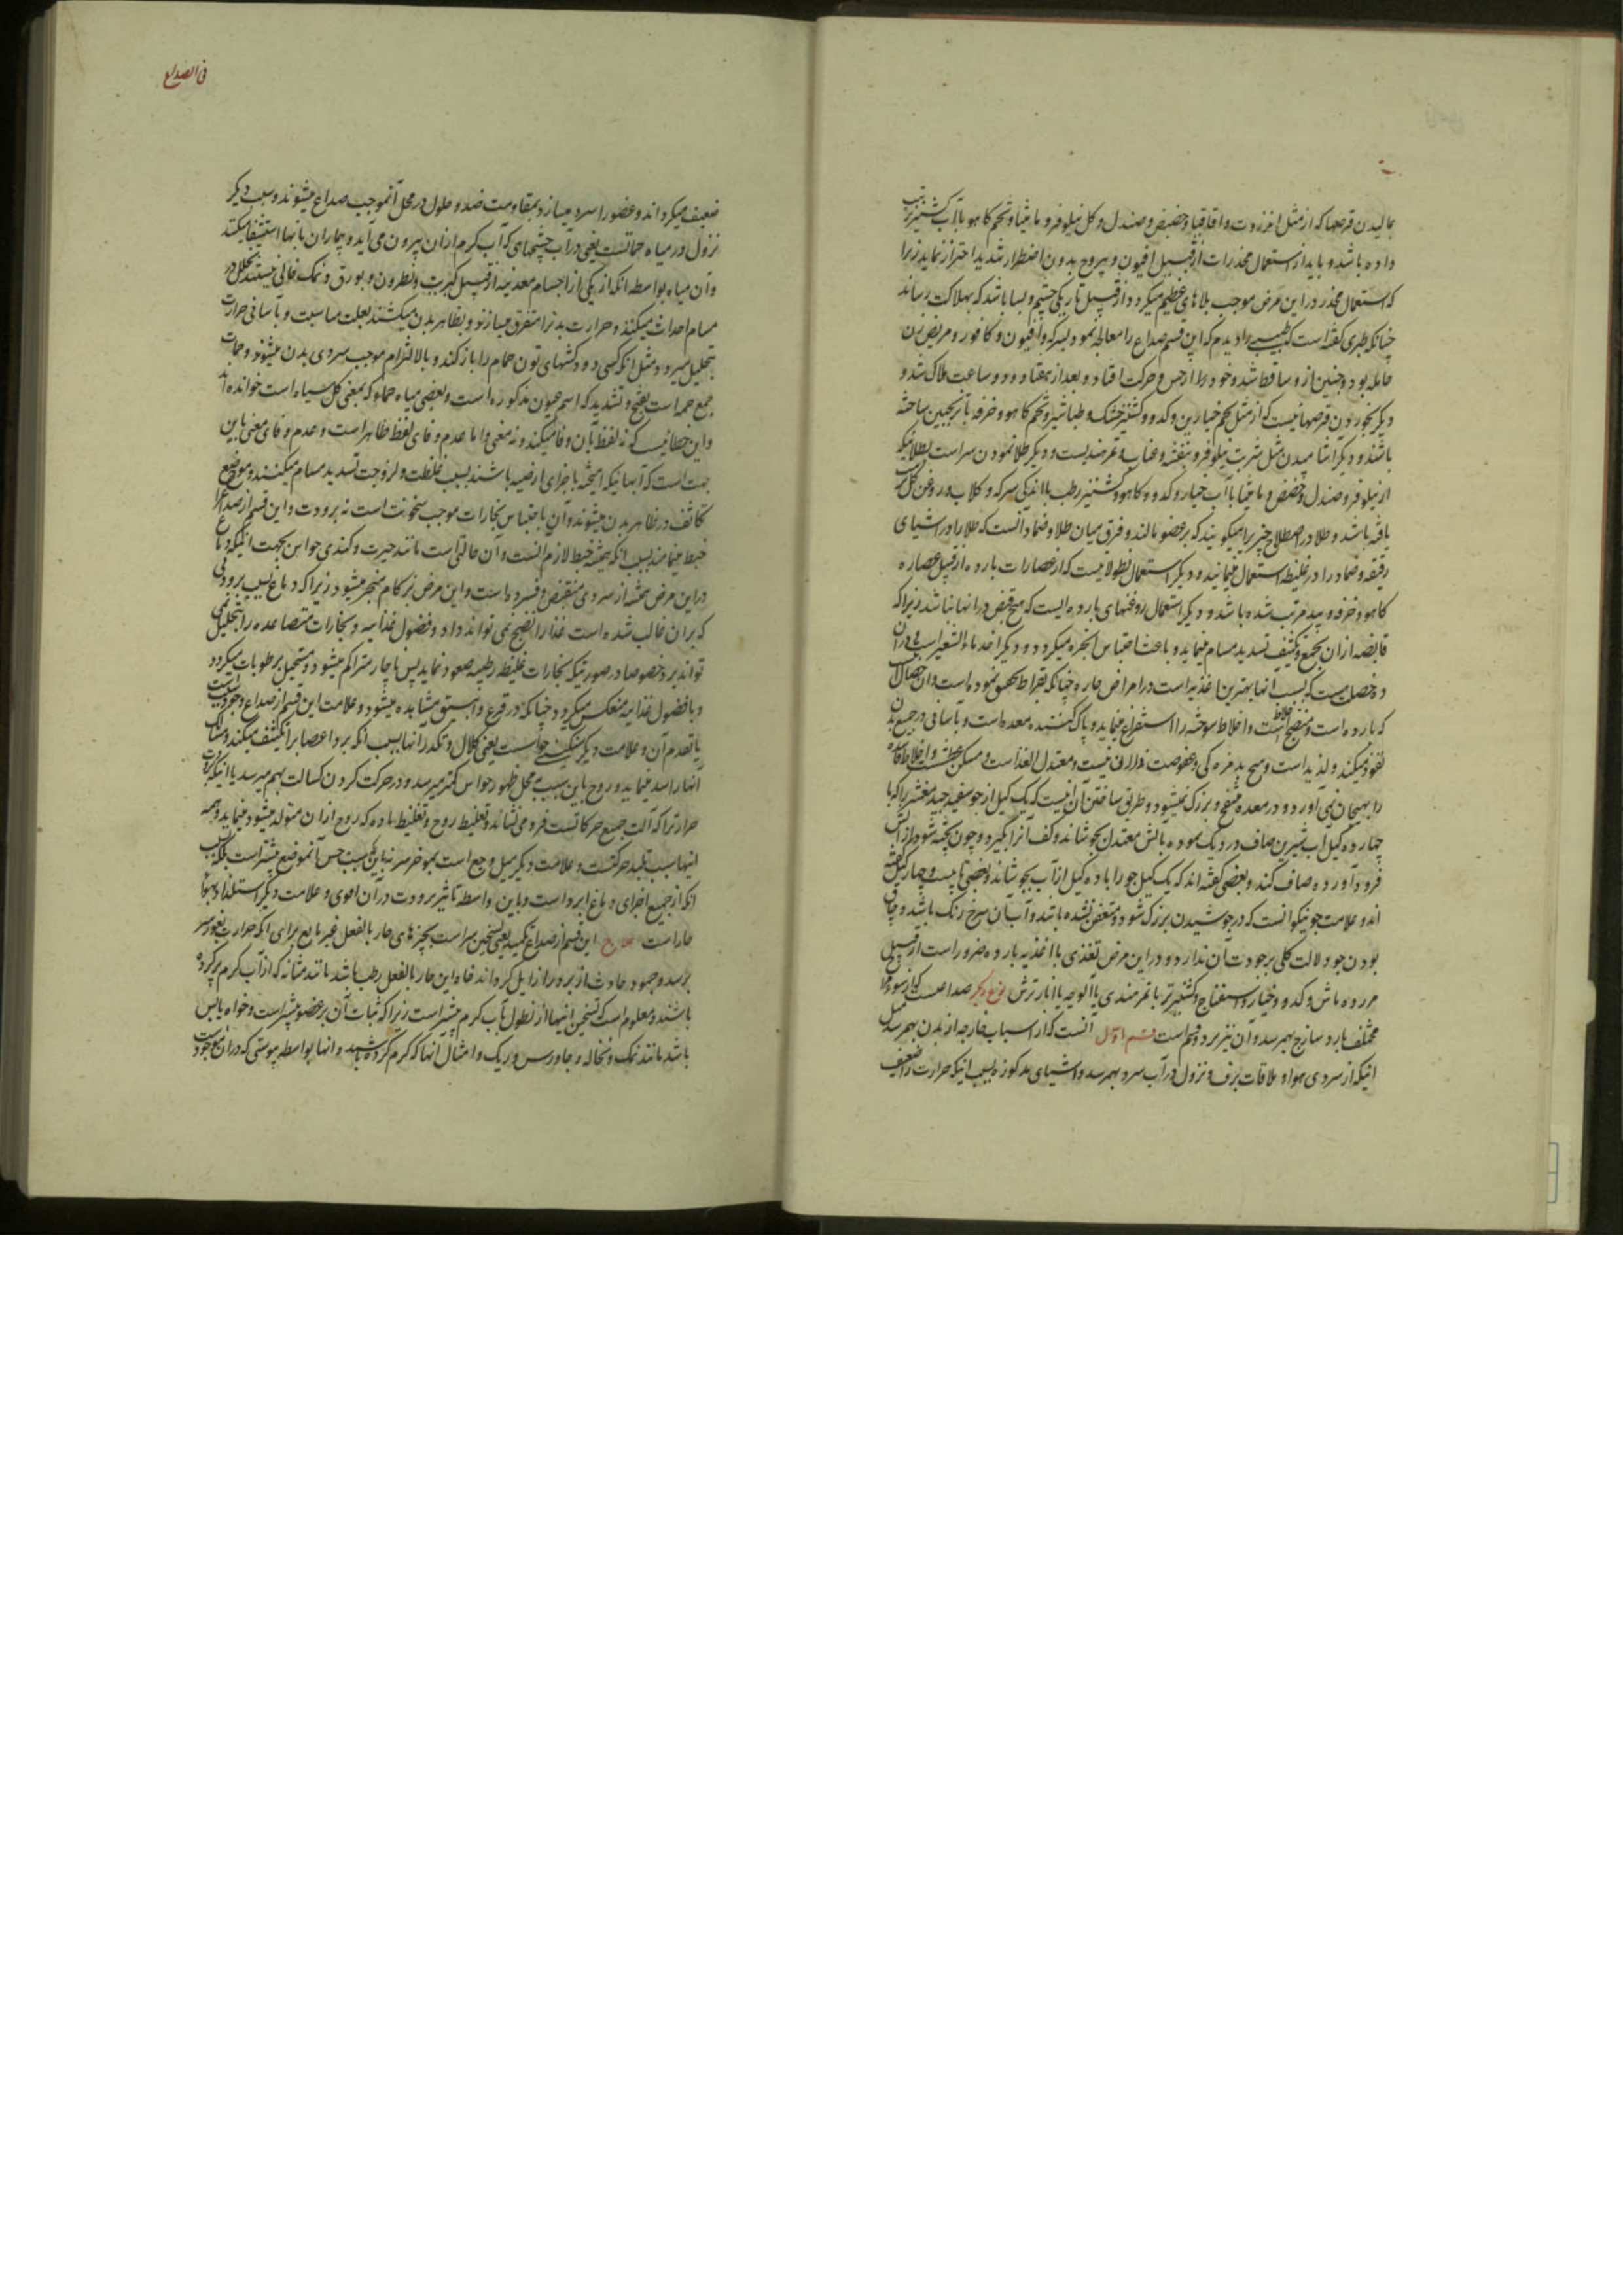 بمالیدن قرصها که از مثل انزروت و اقاقیا و حضض و صندل و کل نیلوفر و مامیثا و تخم کاهو بآب کشنیز ترتیب
داده باشد و باید از استعمال مخدرات از قبیل افیون و یبروج بدون اضطرار شدید احتراز نماید زیرا
که استعمال مخدر در این مرض موجب بلاهای عظیم میکردد از قبیل تاریکی چشم و بسا باشد که بهلاکت رساند
چنانکه طبری کفته است که طبیبی را دیدم که این قسم صداع را معالجه نمود بسرکه و افیون و کافور و مریض زن
حامله بود و جنین از و ساقط شد و خود را از حس و حرکت افتاد و بعد از هفتاد و دو ساعت هلاک شد و
دیکر بخوردن قرصهائیست که از مثل تخم خیارین و کدو و کشنیز خشک و طباشیر و تخم کاهو و خرفه با ترنجبین ساخته
باشند و دیکر آشامیدن مثل شربت نیلوفر و بنفشه و عناب و تمر هندیست و دیکر طلا نمودن سر است بطلائیکه
از نیلوفر و صندل و حضض و مامیثا بآب خیار و کدو و کاهو و کشنیز رطب با اندکی سرکه و کلاب و روغن کل
یافته باشد و طلا در اصطلاح چیزیرا میکویند که بر عضو مالند و فرق میان طلا و ضماد آنست که طلا را در اشیای
رقیقه و ضماد را در غلیظه استعمال مینمایند و دیکر استعمال نطولاتیست که از عصارات بارده از قبیل عصاره
کاهو و خرفه و بید مرتب شده باشد و دیکر استعمال روغنهای بارده ایست که هیچ قبض در انها نباشد زیرا که
قابضه از ان بجمع و تکثیف تسدید مسام مینماید و باعث احتباس ابخره میکردد و دیکر اخذ ماء الشعیر است و در آن
ده خصلت هست که بسبب انها بهترین اغذیه است در امراض حاره چنانکه بقراط تحقیق نموده است و ان خصال آنست
که بارده است و منضج اخلاط است و اخلاط سوخته را استفراغ مینماید و پاک کننده معده است و بآسانی در جمیع بدن
نفوذ میکند و لذید است و هیچ بدمزه کی و عفوصت در ان نیست و معتدل الغذا است و مسکن عطش و اخلاط فاسده
را بهیجان نمی آورد و در معده منتفخ و بزرک نمیشود و طریق ساختن آن اینست که یک کیل از جو سفید جید مقشر را که با
چهارده کیل اب شیرین صاف در دیک نموده باتش معتدل بجوشاند و کف آنرا بکیرد و چون پخته شود از آتش
فرود آورده صاف کند و بعضی کفته اند که یک کیل جو را با ده کیل از آب بجوشاند و بعضی تا بیست و چهار کیل کفته
اند و علامت جو نیکو آنست که در جوشیدن بزرک شود و متعفن نشده باشد و آب آن سرخ رنک باشد و چاق
بودن جو دلالت کلی بر جودت آن ندارد و در این مرض تغذی با اغذیه بارده ضرور است از قبیل
مزوره ماش و کدو و خیار و اسفناج و کشنیز تر با تمر هندی یا آلوچه یا انار ترش نوع دیکر صداعست که از سوء مزاج
مختلف بارد ساذج بهم رسد و آن نیز بر دو قسم است قسم اول آنست که از اسباب خارجه از بدن بهم رسد مثل
انیکه از سردی هوا و ملاقات برف و نزول در آب سرد بهم رسد و اشیای مذکوره بسبب اینکه حرارت را ضعیف
فی الصداع
ضعیف میکردانند و عضو را سرد میسازد بمقاومت ضد و حلول در محل آن موجب صداع میشوند و سبب دیکر
نزول در میاه حماتست یعنی در آب چشمهای که آب کرم از ان بیرون می آید و بیماران بانها استشفا میکنند
و آن میاه بواسطه انکه از یکی از اجسام معدنیه از قبیل کبریت و نطرون و بورق و نمک خالی نیستند تخلل در
مسام احداث میکنند و حرارت بدنرا متفرق میسازند و بظاهر بدن میکشند بعلت مناسبت و بآسانی حرارت
بتحلیل میرود مثل انکه کسی دودکشهای تون حمام را باز کند و بالالتزام موجب سردی بدن میشوند و حمات
جمع حمه است بفتح و تشدید که اسم عیون مذکوره است و بعضی میاه حماه که بمعنی کل سیاه است خوانده اند
و این خطائیست که نه لفظ بان وفا میکند و نه معنی و اما عدم وفای لفظ ظاهر است و عدم وفای معنی باین
جهت است که آبهائیکه امیخته باجزای ارضیه باشند بسبب غلظت و لزوجت تسدید مسام میکنند و موضع
تکاثف در ظاهر بدن میشوند و آن باحتباس بخارات موجب سخونت است نه برودت و این قسم از صداع را
خبط مینامند بسبب انکه همیشه خبط لازم انست و آن حالتی است مانند حیرت و کندی حواس بجهت انکه دماغ
در این مرض همیشه از سردی منقبض و فسرده است و این مرض بزکام منجر میشود زیرا که دماغ بسبب برودتی
که بر ان غالب شده است غذا را نضج نمی تواند داد و فضول غذائیه و بخارات متصاعده را بتحلیل نمی
تواند برد خصوصا در صورتیکه بخارات غلیظه رطبیه صعود نماید پس ناچار متراکم میشود و مستحیل برطوبات میکردد
و با فضول غذائیه منعکس میکردد چنانکه در قرع و انبیق مشاهده میشود و علامت این قسم از صداع وجود سبب است
یا تقدم آن و علامت دیکر سنکینی حواسست یعنی کلال و تکدر انها بسبب انکه برد اعصاب را تکثیف میکند و مسالک
آنها را سد مینماید و روح باین سبب بمحل ظهور حواس کمتر میرسد و در حرکت کردن کسالت بهم میرسد یا اینکه برودت
حرارترا که آلت جمیع حرکاتست فرو می نشاند و تغلیظ روح و تغلیظ ماده که روح از ان متولد میشود مینماید و همه
اینها سبب تبلید حرکتست و علامت دیکر میل وجع است بموخر سر نه باینکه سبب حس آنموضع بیشتر است بلکه بسبب
انکه از جمیع اجزای دماغ ابرد است و باین واسطه تاثیر برودت در آن اقوی و علامت دیکر استلذاذ بهوای
حار است علاج این قسم از صداع تکمید یعنی تسخین سر است بچیزهای حار بالفعل غیر مایع برای انکه حرارت بغور سر
برسد و جمود حادث از برد را زایل کرداند خواه این حار بالفعل رطب باشد مانند مثانه که از آب کرم پر کرده
باشند و معلوم است که تسخین اینها از نطول بآب کرم بیشتر است زیرا که ثبات آن بر عضو بیشتر است و خواه یابس
باشد مانند نمک و نخاله و جاورس و ریک و امثال آنها که کرم کرده باشند و انها بواسطه یبوستی که در ان موجود